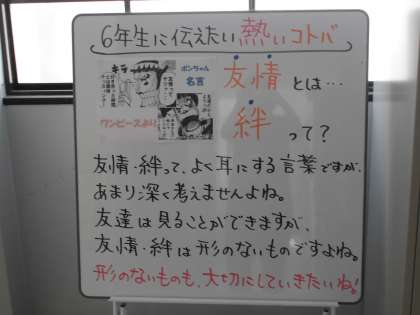 6年生に伝えたい熱いコトバ
ボンちゃん
名言
ワンピースより
友情とは…
絆って？
友情・絆って、よく耳にする言葉ですが、
あまり深く考えませんよね。
友達は見ることができますが、
友情・絆は形のないものですよね。
形のないものも、大切にしていきたいね！